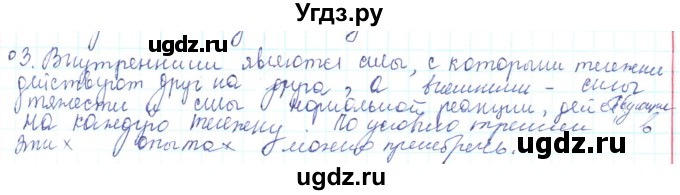 Угдз.ру
3. Внутренними являются силы, с которыми тележки
действуют друг на друга, а внешними - силы
тяжести и силы нормальной реакции, действующие
на каждую тележку. По условию трением в
этих опытах можно пренебречь.
©Угдз.ру